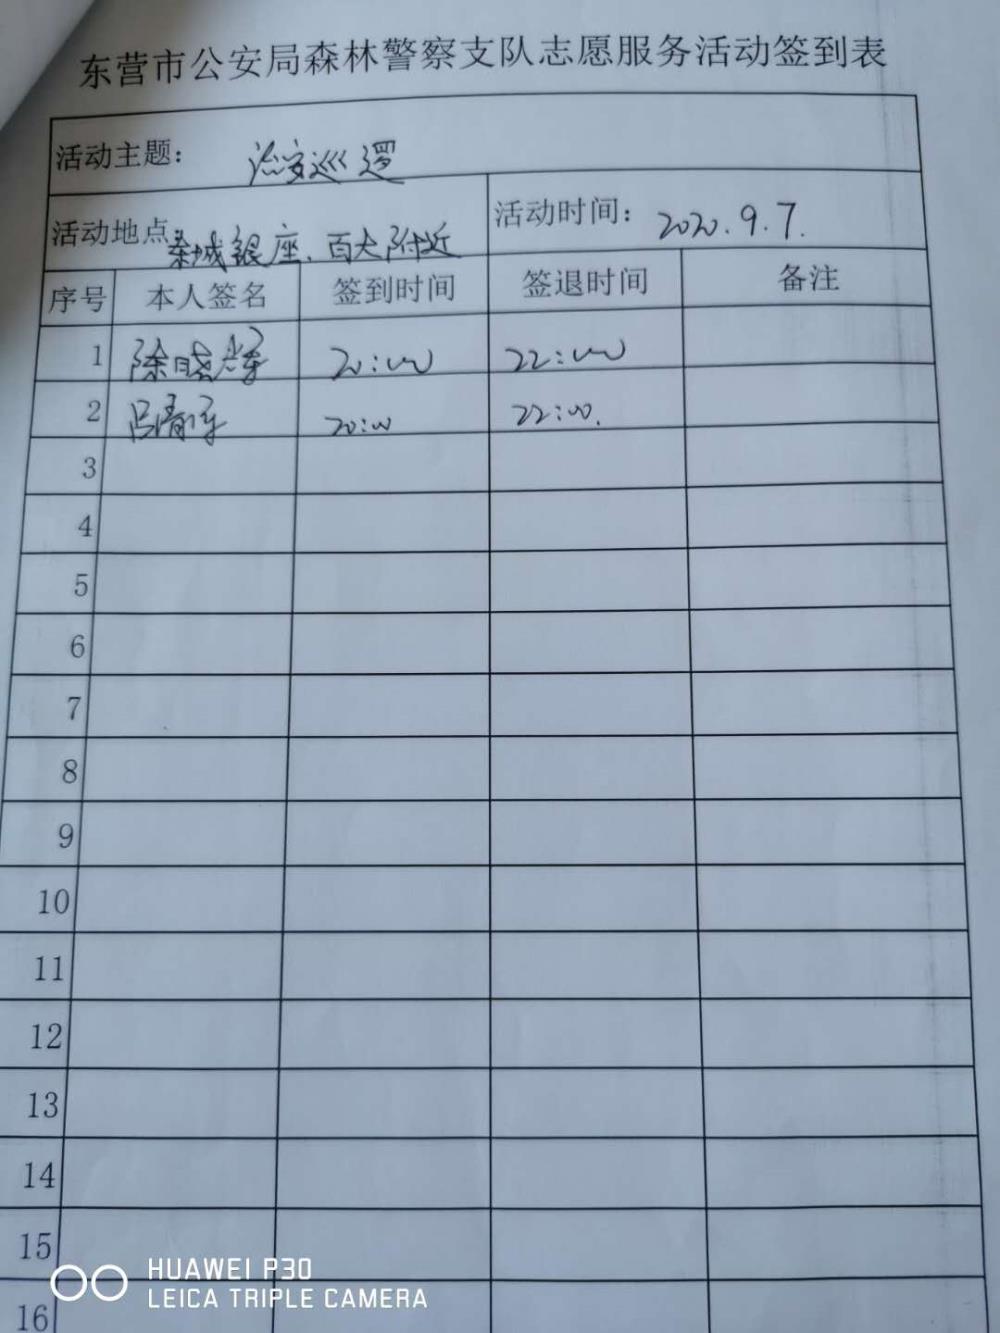 东营市公安局森林警察支队志愿服务活动签到表
活动主题： 治安巡逻
活动地点 秦城银座、百大附近 活动时间： 2020.9.7.
序号 本人签名 签到时间 签退时间 备注
1 徐晓军 20:00 22:00
2 吕清军 20:00 22:00.
3
4
5
6
7
8
9
10
11
12
13
14
15
16
HUAWEI P30
LEICA TRIPLE CAMERA